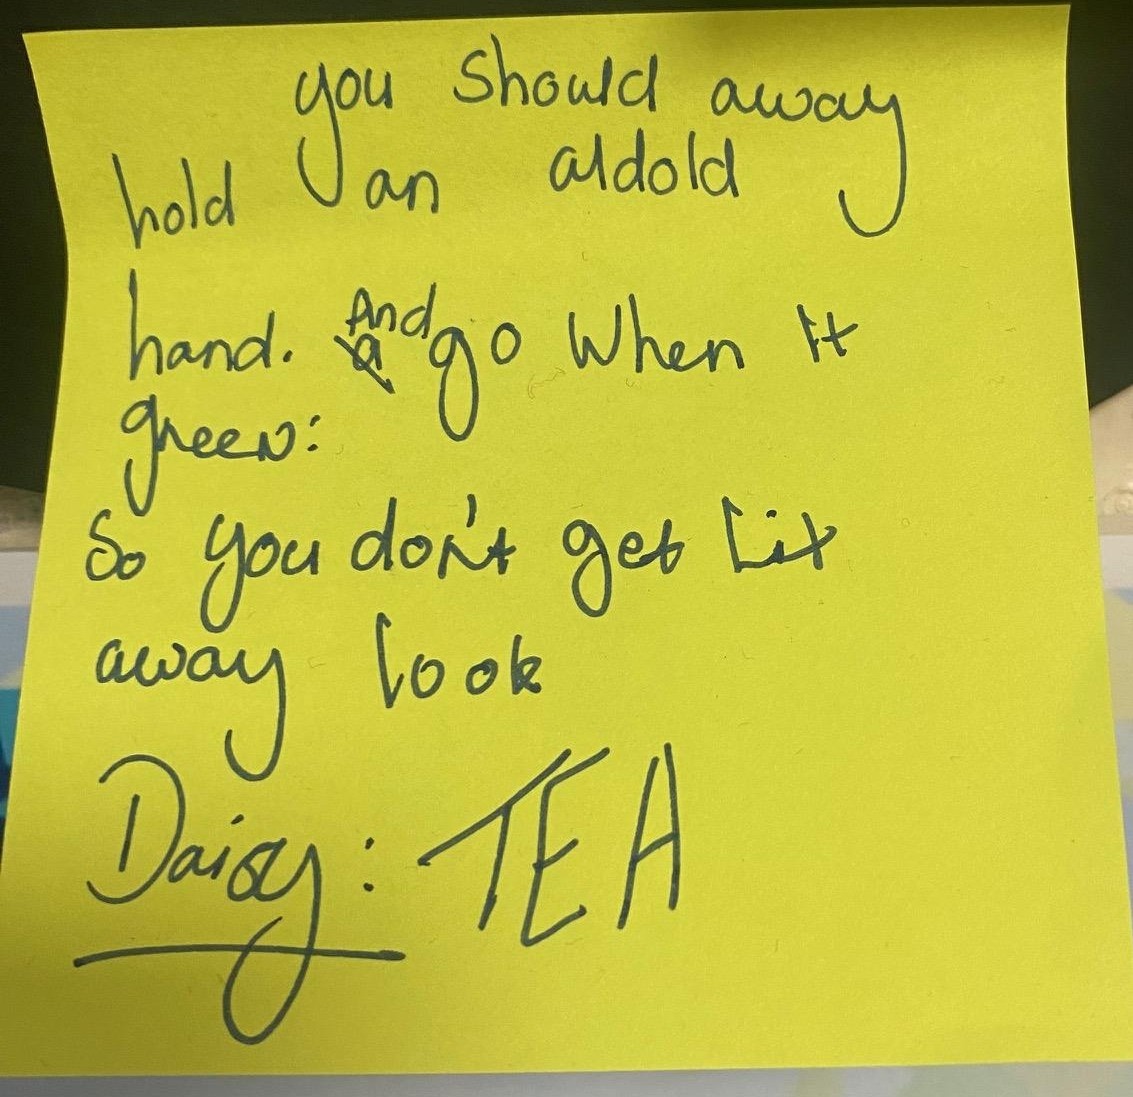 you should away
hold an aldold
hand. And go When it
green:
So you don't get Lit
away look
Daisy: TEA